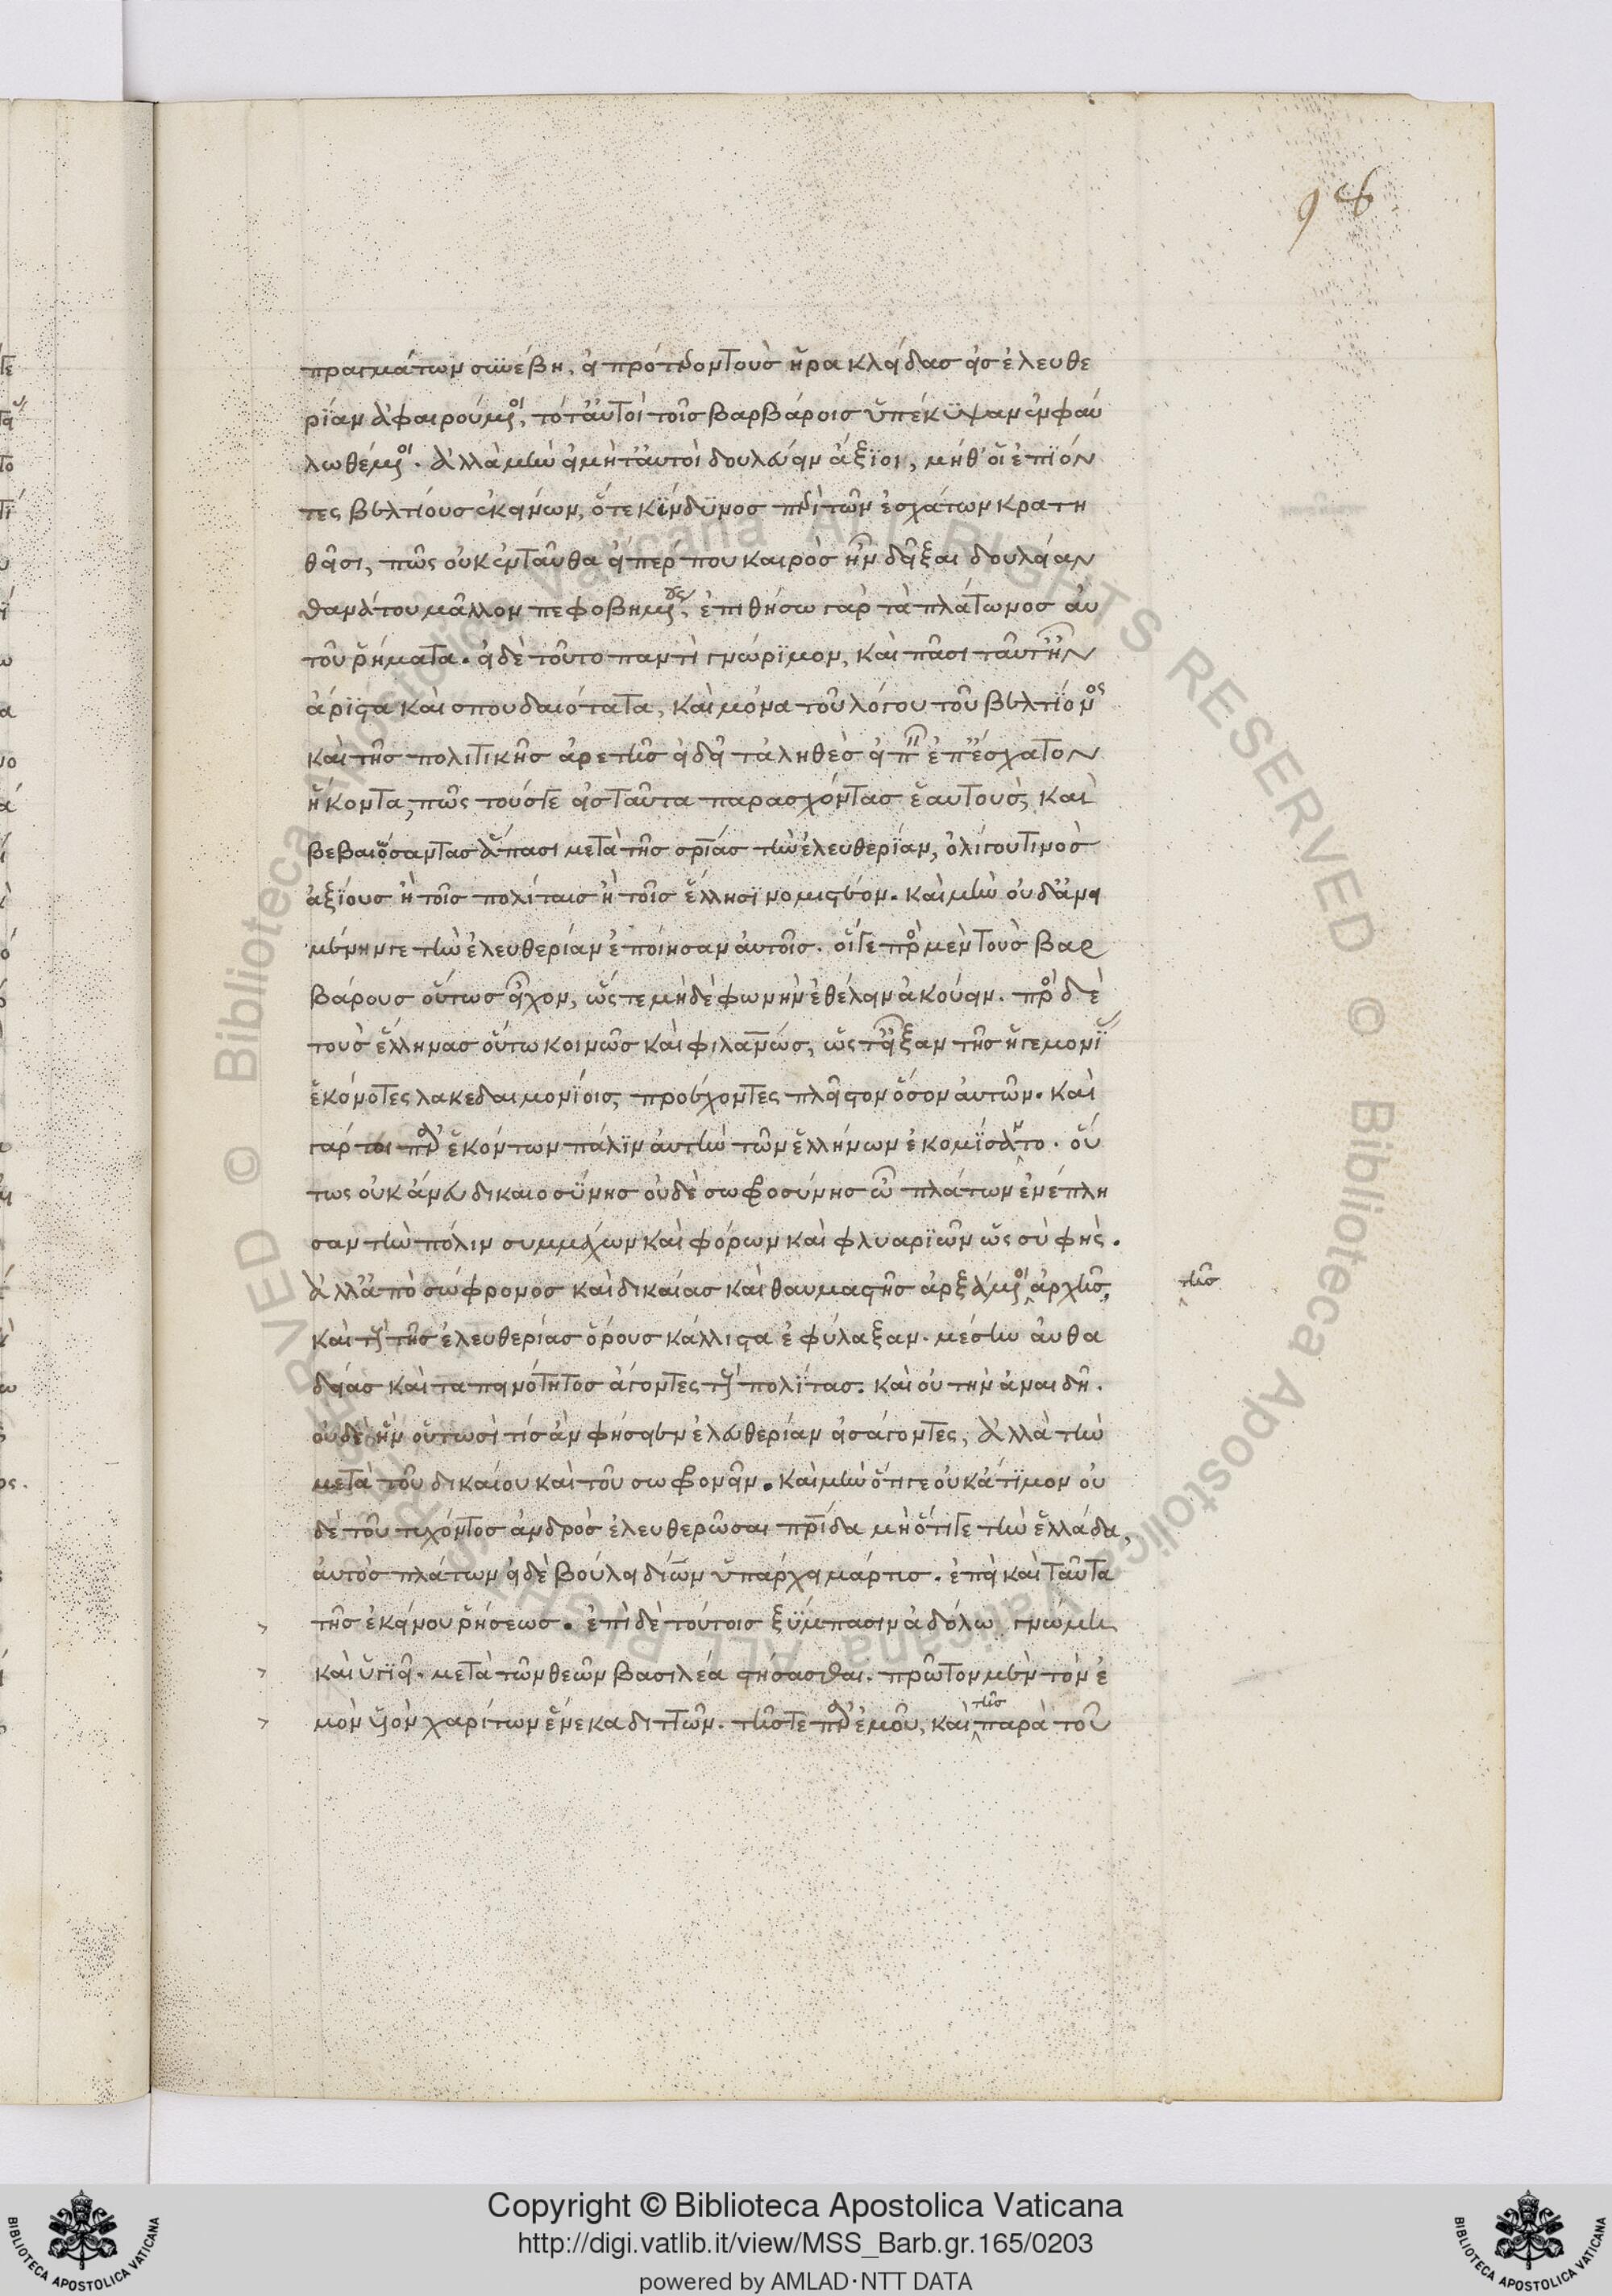 96
πραγμάτων συνέβη, εἰ πρότερον τοὺς ἡρακλείδας εἰς ἐλευθε
ρίαν ἀφαιρούμενοι, τότ' αὐτοὶ τοῖς βαρβάροις ὑπέκυψαν ἐμφαυ
λωθέντες. ἀλλὰ μὴν εἰ μήτ' αὐτοὶ δουλεύειν ἄξιοι, μήθ' οἱ ἐπϊόν
τες βελτίους ἐκείνων, ὅτε κίνδϋνος περὶ τῶν ἐσχάτων κρατη
θεῖσι, πῶς οὐκ ἐνταῦθα εἴπερ που καιρὸς ἦν δεῖξαι δουλείαν
θανάτου μᾶλλον πεφοβημένους, ἐπιθήσω γὰρ τὰ πλάτωνος αὐ
τοῦ ῥήματα. εἰ δὲ τοῦτο παντὶ γνώρϊμον, καὶ πᾶσι ταύτην
ἄρϊστα καὶ σπουδαιότατα, καὶ μόνα τοῦ λόγου τοῦ βελτϊόνος
καὶ τῆς πολιτικῆς ἀρετῆς εἰ δεῖ τἀληθὲς εἰπεῖν ἐπ' ἔσχατον
ἥκοντα, πῶς τούς γε εἰς ταῦτα παρασχόντας ἑαυτοὺς, καὶ
βεβαιώσαντας ἅπασι μετὰ τῆς σωτηρίας τὴν ἐλευθερίαν, ὀλίγου τινὸς
ἀξίους ἢ τοῖς πολίταις ἢ τοῖς ἕλλησϊ νομιστέον. καὶ μὴν οὐδ' ἀμει
μένην γε τὴν ἐλευθερίαν ἐποίησαν αὐτοῖς. οἵ γε πρὸς μὲν τοὺς βαρ
βάρους οὕτως εἶχον, ὥστε μηδὲ φωνὴν ἐθέλειν ἀκούειν. πρὸς δὲ
τοὺς ἕλληνας οὕτω κοινῶς καὶ φιλανθρώπως, ὥστ' εἶξαν τῆς ἡγεμονίας
ἑκόντες λακεδαιμονίοις, προέχοντες πλεῖστον ὅσον αὐτῶν. καὶ
γάρ τοι παρ' ἑκόντων πάλϊν αὐτὴν τῶν ἑλλήνων ἐκομίσαντο. οὕ
τως οὐκ ἄνευ δικαιοσύνης οὐδὲ σωφροσύνης ὦ πλάτων ἐνέπλη
σαν τὴν πόλιν συμμάχων καὶ φόρων καὶ φλυαρϊῶν ὡς σὺ φής.
ἀλλ' ἀπὸ σώφρονος καὶ δικαίας καὶ θαυμαστῆς ἀρξάμενοι ἀρχῆς,
τῆς
καὶ τοὺς τῆς ἐλευθερίας ὅρους κάλλιστα ἐφύλαξαν. μέσην αὐθα
δείας καὶ ταπεινότητος ἄγοντες τοὺς πολίτας. καὶ οὐ τὴν ἀναιδῆ.
οὐδὲ ἣν οὑτωσὶ τίς ἂν φήσειεν ἐλευθερίαν εἰσάγοντες, ἀλλὰ τὴν
μετὰ τοῦ δικαίου καὶ τοῦ σωφρονεῖν. καὶ μὴν ὅτι γε οὐκ ἄτϊμον οὐ
δὲ τοῦ τυχόντος ἀνδρὸς ἐλευθερῶσαι πατρίδα μὴ ὅτι γε τὴν ἑλλάδα,
αὐτὸς πλάτων εἰ δὲ βούλει δίων ὑπάρχει μάρτυς. ἐπεὶ καὶ ταῦτα
τῆς ἐκείνου ῥήσεως. ἐπὶ δὲ τούτοις ξύμπασιν ἀδόλω γνώμη
καὶ ὑγϊεῖ. μετὰ τῶν θεῶν βασιλέα στήσασθαι. πρῶτον μὲν τὸν ἐ
μὸν υἱὸν χαρίτων ἕνεκα διττῶν. τῆς τε παρ' ἐμοῦ, καὶ τῆς παρὰ τοῦ
Copyright © Biblioteca Apostolica Vaticana
http://digi.vatlib.it/view/MSS_Barb.gr.165/0203
powered by AMLAD·NTT DATA